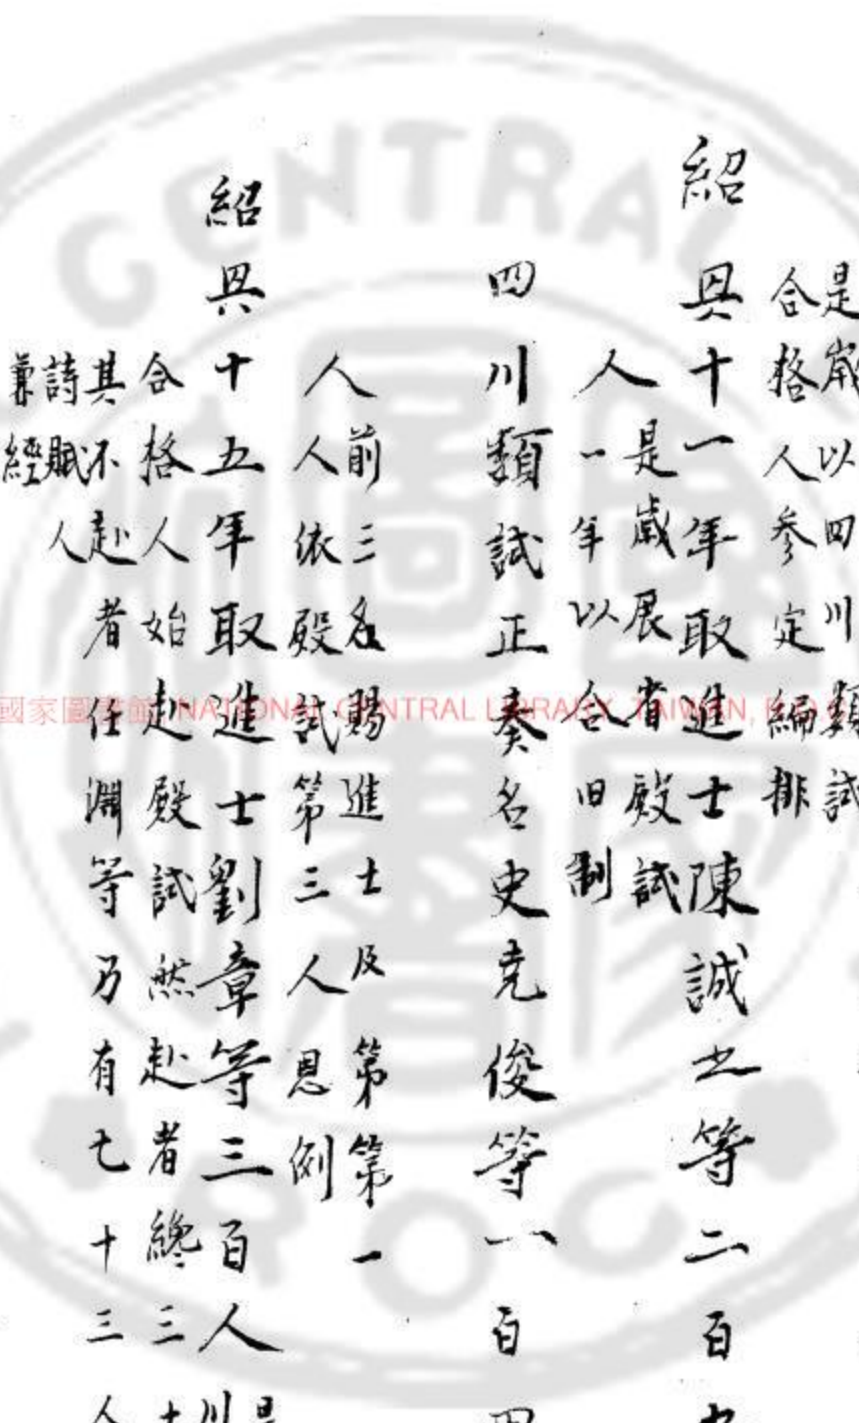 是歲以四川類試
合格人參定編排
紹興十一年取進士陳誠之等二百九
人是歲展省殿試
一年以合旧制
四川類試正奏名史克俊等一百四
人前三名賜進士及第第一
人依殿試第三人恩例
紹興十五年取進士劉章等三百人是
川
合格人始赴殿試然赴者纔三十
其不赴者任淵等乃有七十三人
詩賦人
兼經
國家圖書館 NATIONAL CENTRAL LIBRARY, TAIWAN, R.O.C
CENTRAL
ROC